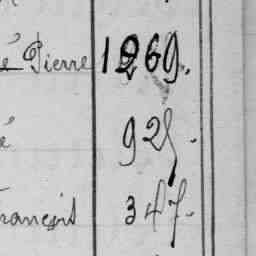 é Pierre 1269.
é 925.
rançois 347.